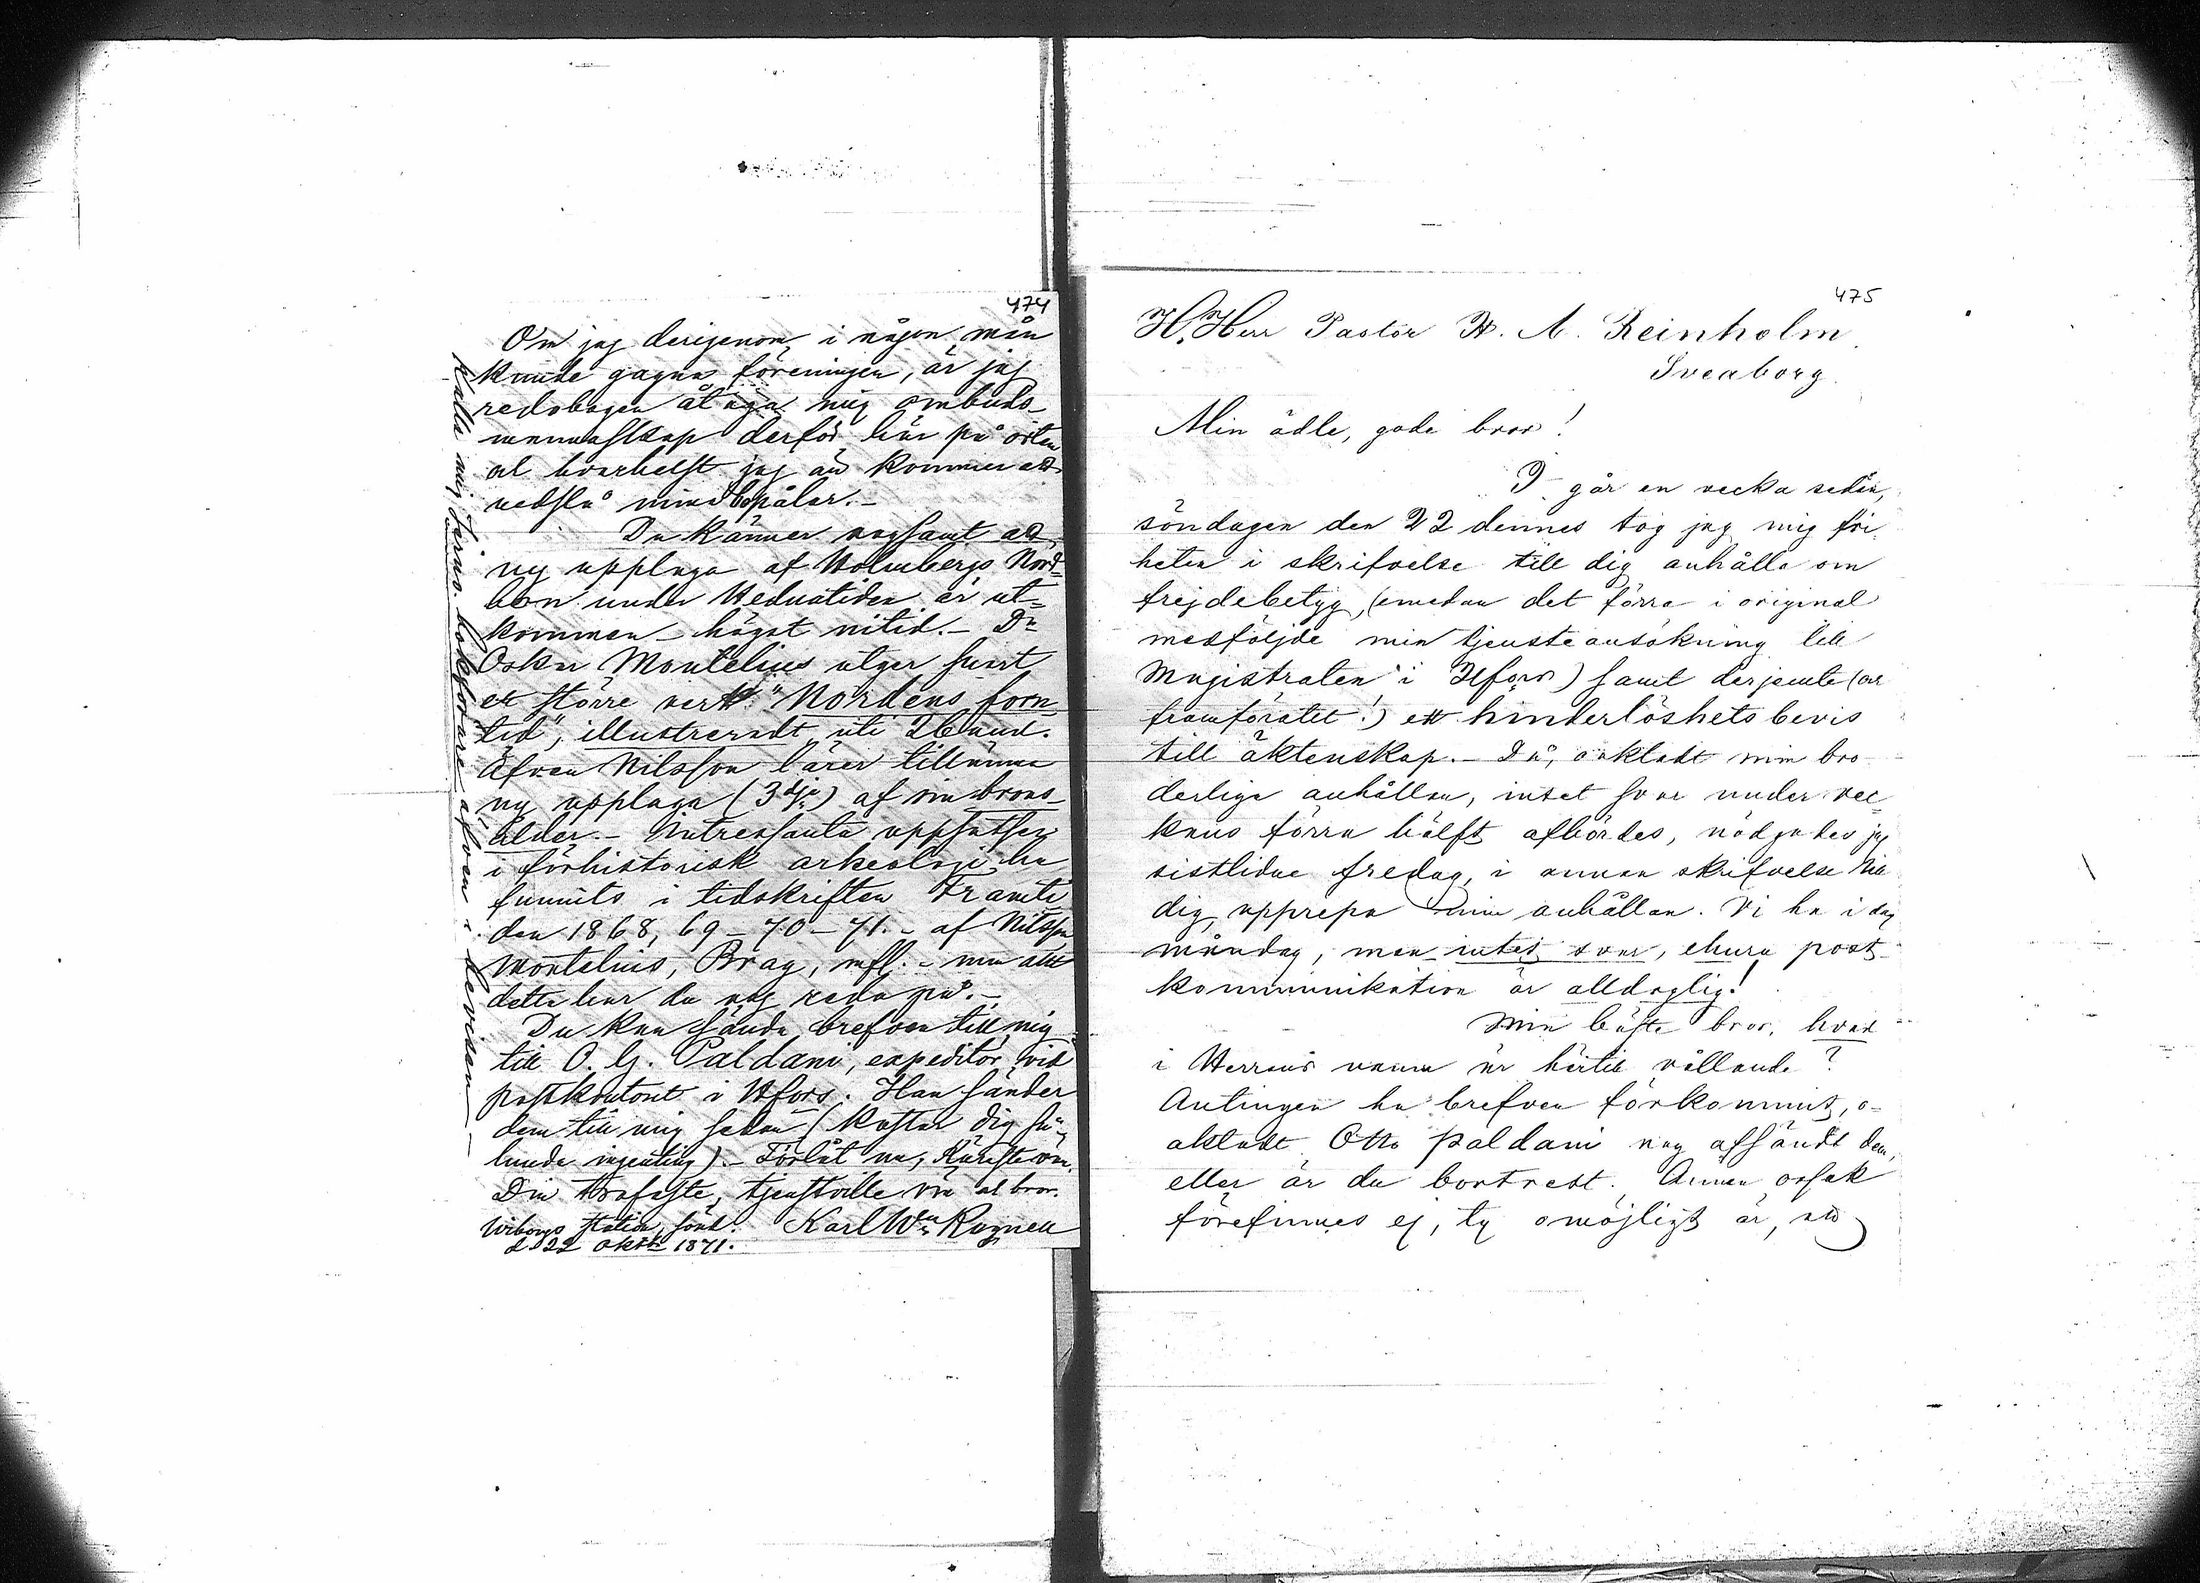 474
Om jag derigenom i någon mån
kunde gagna föreningen, är jag
redobogen åtaga mig ombuds-
mannaskap derför här på orten
al hvarhelst jag än kommer att
nedslå mina bopålar. -
Du känner nogsamt att
ny upplaga af Holmbergs Nord-
bon under Hednatiden är ut-
kommen - högst nitid. - Dr
Oskar Montelius utger snart
ett större verk "Nordens forn
tid", illustreradt uti 2 band.
Äfven Nilsson lärer tillämna
ny upplaga (3dje) af sin brons-
ålder. - Intressanta uppsatser
i förhistorisk arkeologi ha
funnits i tidskriften Framti
den 1868, 69 - 70 - 71. - af Nilsson
Montelius, Brag, mfl. - men allt
detta har du nog reda på. -
Du kan sända brefven till mig
till O. G. Paldani, expeditör vid
postkontoret i Hfors. Han sänder
dem till mig sedan (kostar dig så-
lunda ingenting). - Förlåt nu, käresta vän.
Din trofaste, tjenstville vän al bror.
Wiborgs station, sönd. Karl Wm Ragnell
d. 22 Oktob 1871.
Kalla mig bokförare äfven
475
H. Herr Pastor H. A. Reinholm
Sveaborg.
Min ädle, gode bror!
I går en vecka sedan,
söndagen den 22 dennes tog jag mig fri
heten i skrifvelse till dig anhålla om
frejdebetyg, (emedan det förra i original
medföljde min tjensteansökning till
Magistraten i Hfors) samt derjemte (ar
framförätet!) ett hinderlöshetsbevis
till äktenskap. - Då, oaktadt min bro-
derliga anhållan, intet svar under vec-
kans förra hälft afhördes, nödgades jag
sistlidne fredag, i annan skrifvelse till
dig, upprepa min anhållan. Vi ha i dag
måndag, men intet svar, ehuru post-
kommunikation är alldaglig!
Min bäste bror, hvad
i Herrens namn är härtill vållande?
Antingen ha brefven förkommit, o-
aktadt Otto Paldani nog afsändt dem,
eller är du bortrest. Annan orsak
förefinnes ej, ty omöjligt är, att